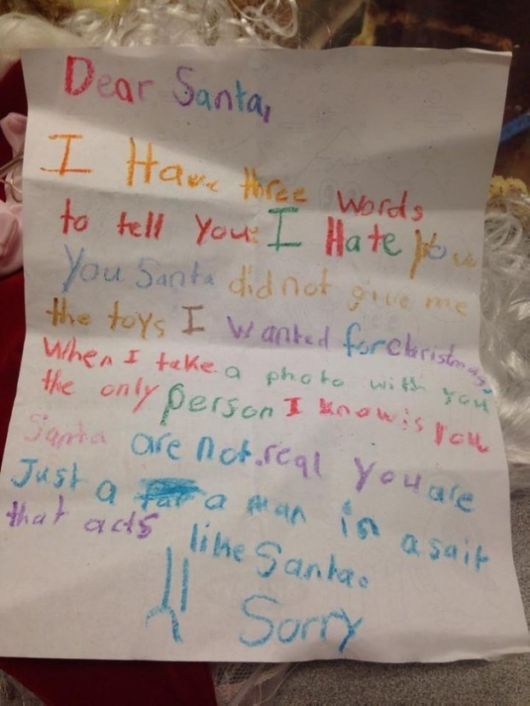 Dear Santa,
I Have three words
to tell you: I Hate you
You Santa did not give me
the toys I wanted for christmas
When I take a photo with you
the only person I know is you
Santa are not real you are
Just a a man in a sait
that acts like Santa.
Sorry